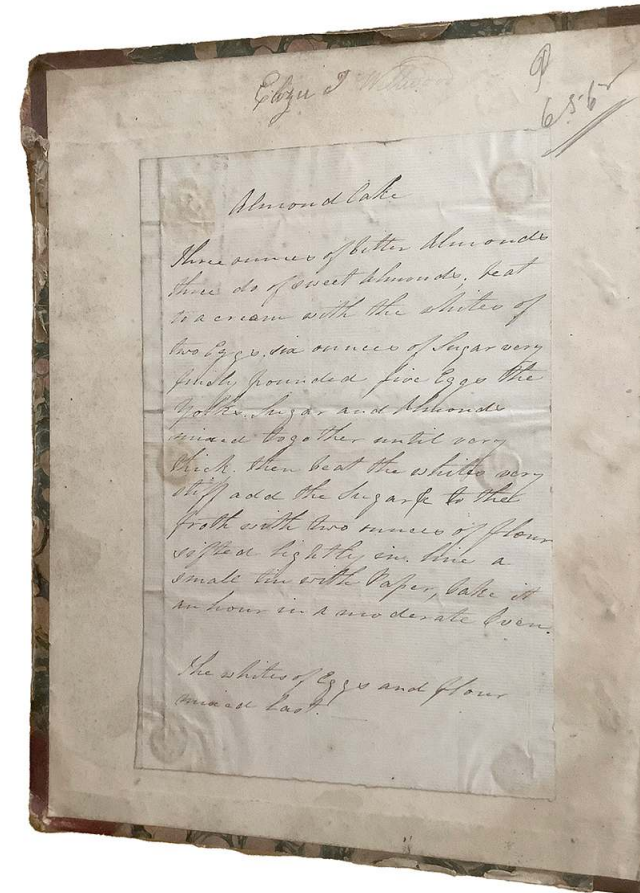 Eliza T
P
656
Almond Cake
Three ounces of bitter Almonds
three do of sweet Almonds, beat
to a cream with the whites of
two Eggs, six ounces of Sugar very
finely pounded five Eggs the
Yolks, Sugar and Almonds
mixed together until very
thick. then beat the whites very
stiff add the Sugar &c to the
froth with two ounces of flour
sifted lightly in. line a
small tin with Paper, bake it
an hour in a moderate Oven.
The whites of Eggs and flour
mixed last.